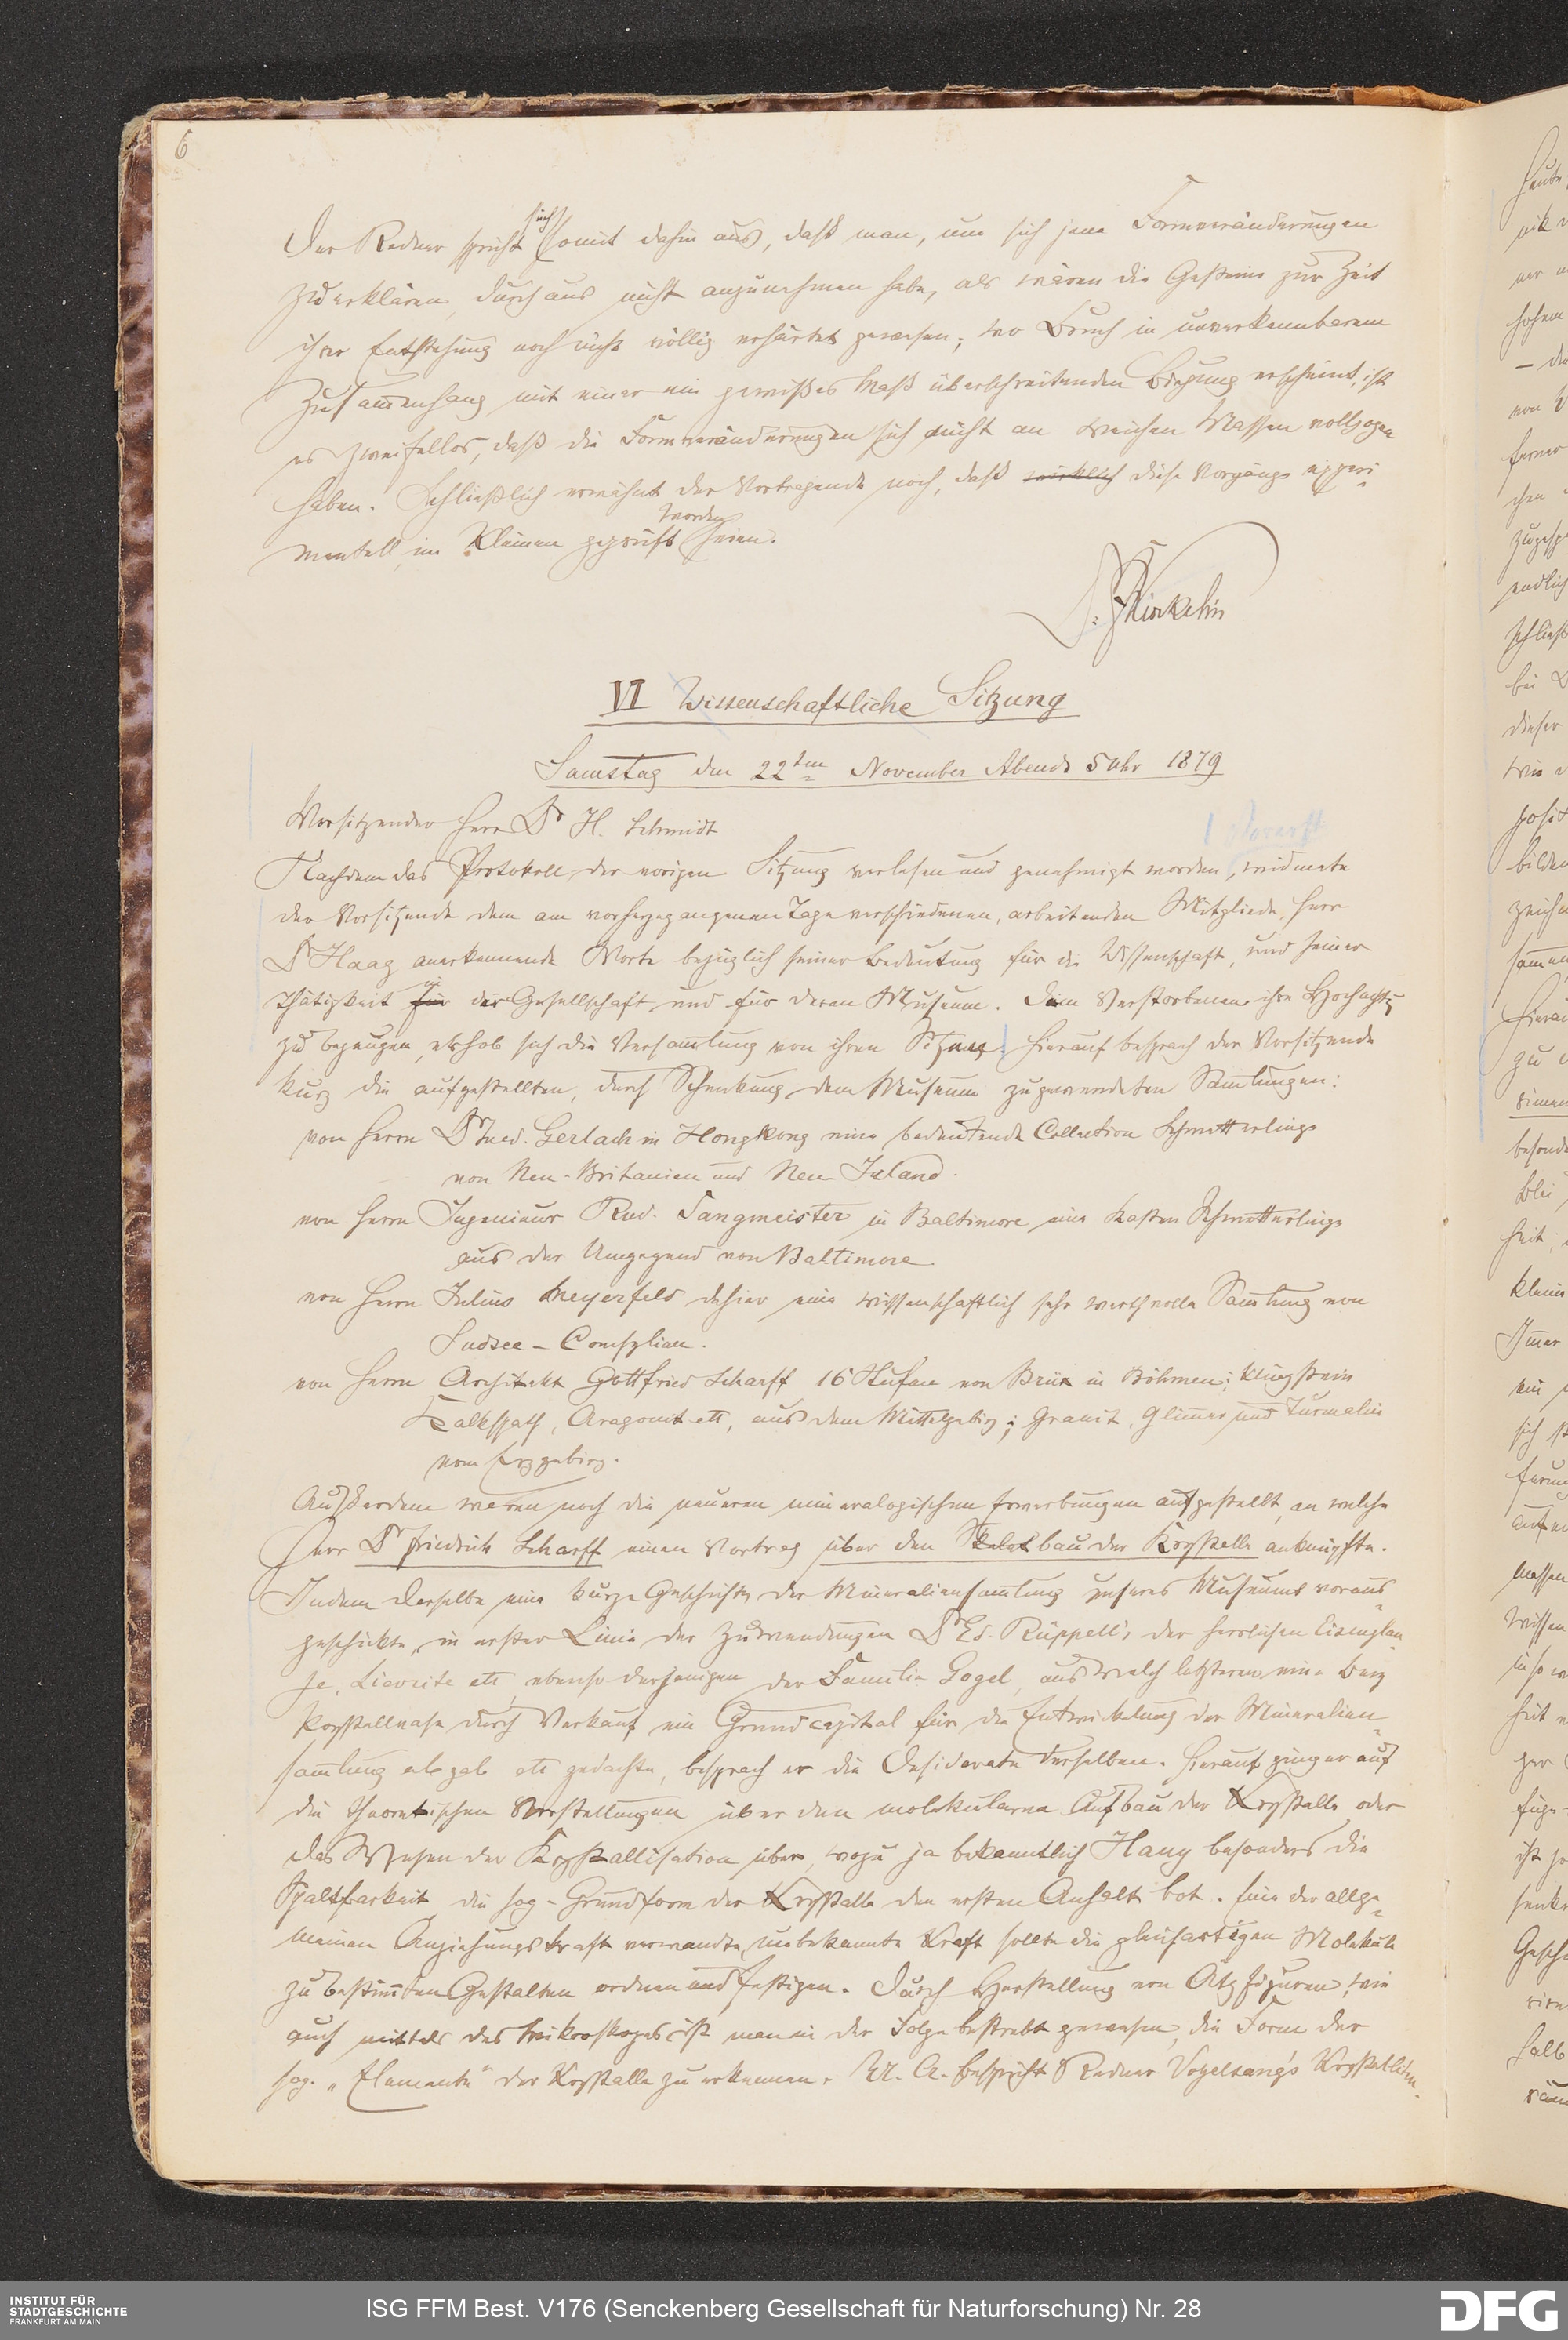 6
Der Redner spricht sich somit dahin aus, daß man, um sich jene Formveränderungen
zu erklären, durchaus nicht anzunehmen habe, als wären die Gesteine zur Zeit
ihrer Entstehung noch nicht völlig erhärtet gewesen; wo Bruch in unverkennbarem
Zusam̄enhang mit einer ein gewisses Maß überschreitenden Biegung erscheint, ist
es zweifellos, daß die Formveränderungen sich nicht an weichen Massen vollzogen
haben. Schließlich erwähnt der Vortragende noch, daß wirklich diese Vorgänge experi-
mentell im Kleinen geprüft worden seien.
F. Kinkelin
VI Wissenschaftliche Sitzung
Samstag den 22ten November Abends 5 Uhr 1879
Vorsitzender Herr Dr H. Schmidt
Vorerst
Nachdem das Protokoll der vorigen Sitzung verlesen und genehmigt worden, widmete
der Vorsitzende dem am vorhergegangenen Tage verschiedenen, arbeitenden Mitgliede, Herr
Dr Haag anerkennende Worte bezüglich seiner Bedeutung für die Wissenschaft, und seiner
Thätigkeit für in der Gesellschaft und für deren Museum. Dem Verstorbenen ihre Hochachtg
zu bezeugen, erhob sich die Versam̄lung von ihren Sitzen. Hierauf besprach der Vorsitzende
kurz die aufgestellten, durch Schenkung dem Museum zugewendeten Sam̄lungen:
von Herrn Dr med. Gerlach in Hongkong eine bedeutende Collection Schmetterlinge
von Neu-Britanien und Neu Irland.
von Herrn Ingenieur Rud. Tangmeister in Baltimore eine Kasten Schmetterlinge
aus der Umgegend von Baltimore.
von Herrn Julius Meyerfeld dahier eine wissenschaftlich sehr werthvolle Sam̄lung von
Südsee-Conchylien.
von Herrn Architekt Gottfried Scharff 16 Stufen von Brüx in Böhmen; Klingstein
Kalkspath, Aragonit ett, aus dem Mittelgebirg; Granit, Glim̄er und Turmalin
vom Erzgebirg.
Außerdem waren noch die neueren mineralogischen Erwerbungen aufgestellt, an welche
Herr Dr Friedrich Scharff einen Vortrag über den Skeletbau der Krystalle anknüpfte.
Indem derselbe eine kurze Geschichte der Mineraliensam̄lung unseres Museums voraus-
geschickte, in erster Linie der Zuwendungen Dr Ed. Rüppell's, der herrlichen Eisenglan-
ze, Lievrite etc, ebenso derjenigen der Familie Gogel, aus welch letzteren eine Berg
krystallvase durch Verkauf ein Grundcapital für die Entwickelung der Mineralien-
sam̄lung abgab etc gedachte, besprach er die Desiderate derselben. Hierauf ging er auf
die theoretischen Vorstellungen über den molekularen Aufbau der Krystalle oder
das Wesen der Krystallisation über, wozu ja bekanntlich Hauy besonders die
Spaltbarkeit die sog. Grundform der Krystalle den ersten Anhalt bot. Eine der allge-
meinen Anziehungskraft verwandte, unbekannte Kraft sollte die gleichartigen Moleküle
zu bestim̄ten Gestalten ordnen und festigen. Durch Herstellung von Ätzfiguren, wie
auch mittels des Mikroskopes ist man in der Folge bestrebt gewesen, die Form der
sog. „Elemente" der Krystalle zu erkennen. U. A. bespricht Redner Vogelsang's Krystalliten-
INSTITUT FÜR
STADTGESCHICHTE
FRANKFURT AM MAIN
ISG FFM Best. V176 (Senckenberg Gesellschaft für Naturforschung) Nr. 28
DFG